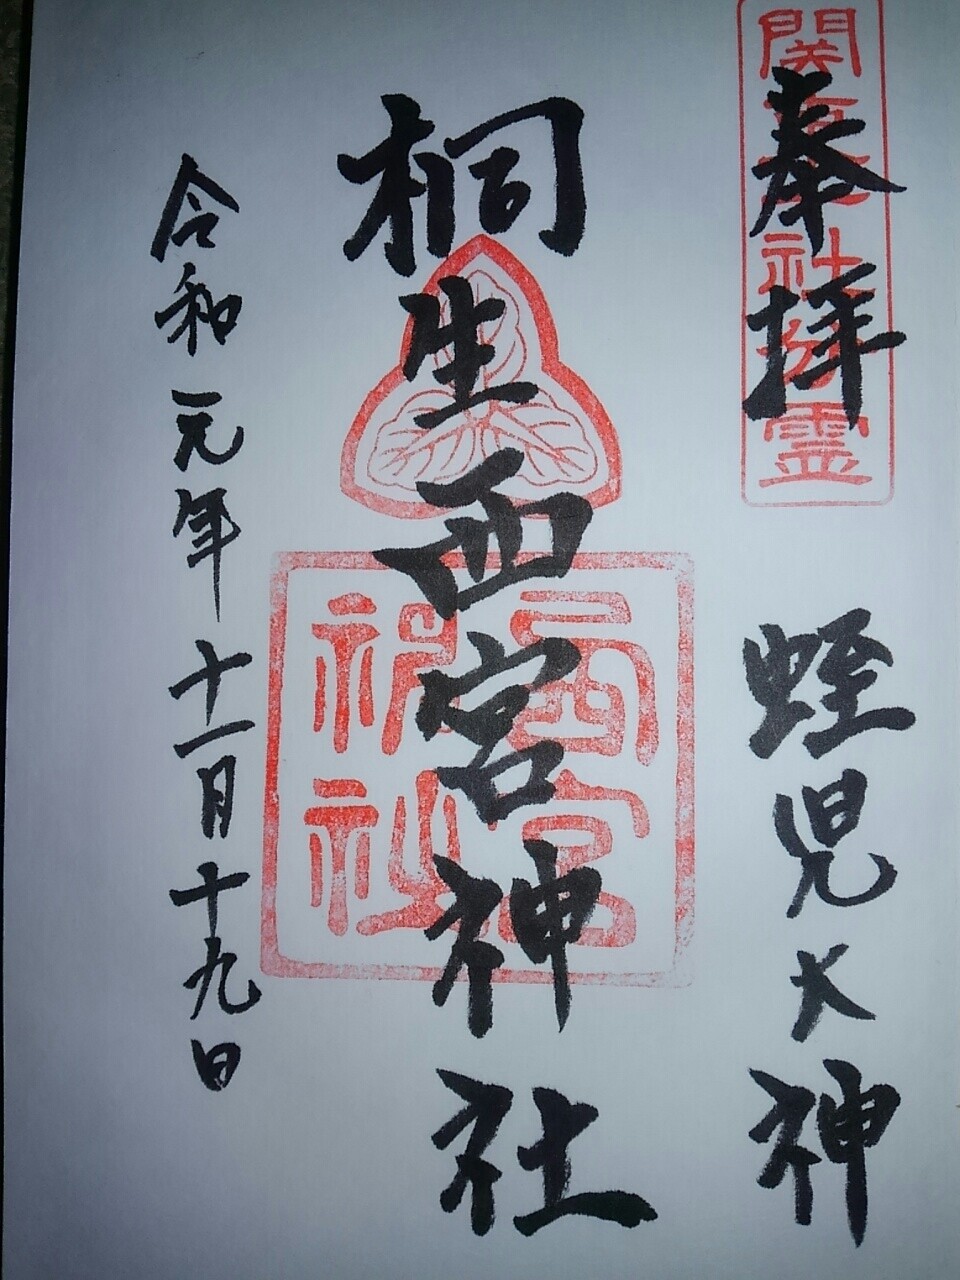 奉拝
蛭児大神
関東一社分霊
桐生西宮神社
西宮神社
令和元年十一月十九日